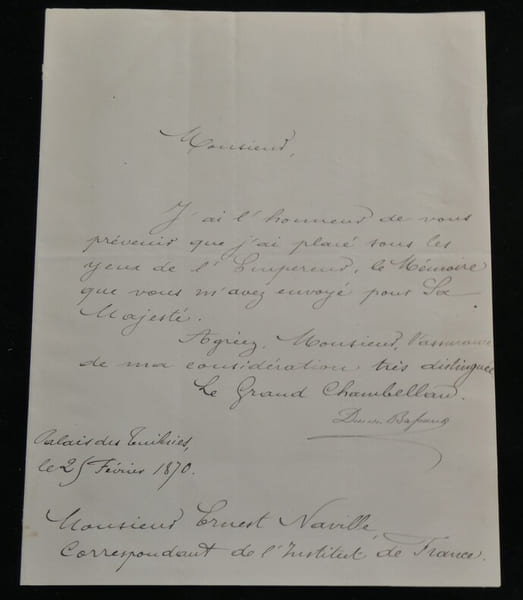 Monsieur,
J'ai l'honneur de vous
prévenir que j'ai placé sous les
yeux de l'Empereur, le Mémoire
que vous m'avez envoyé pour Sa
Majesté.
Agréez, Monsieur, l'assurance
de ma considération très distinguée
Le Grand Chambellan.
Duc de Bassano
Palais des Tuileries,
le 25 Février 1870.
Monsieur Ernest Naville,
Correspondant de l'Institut de France.